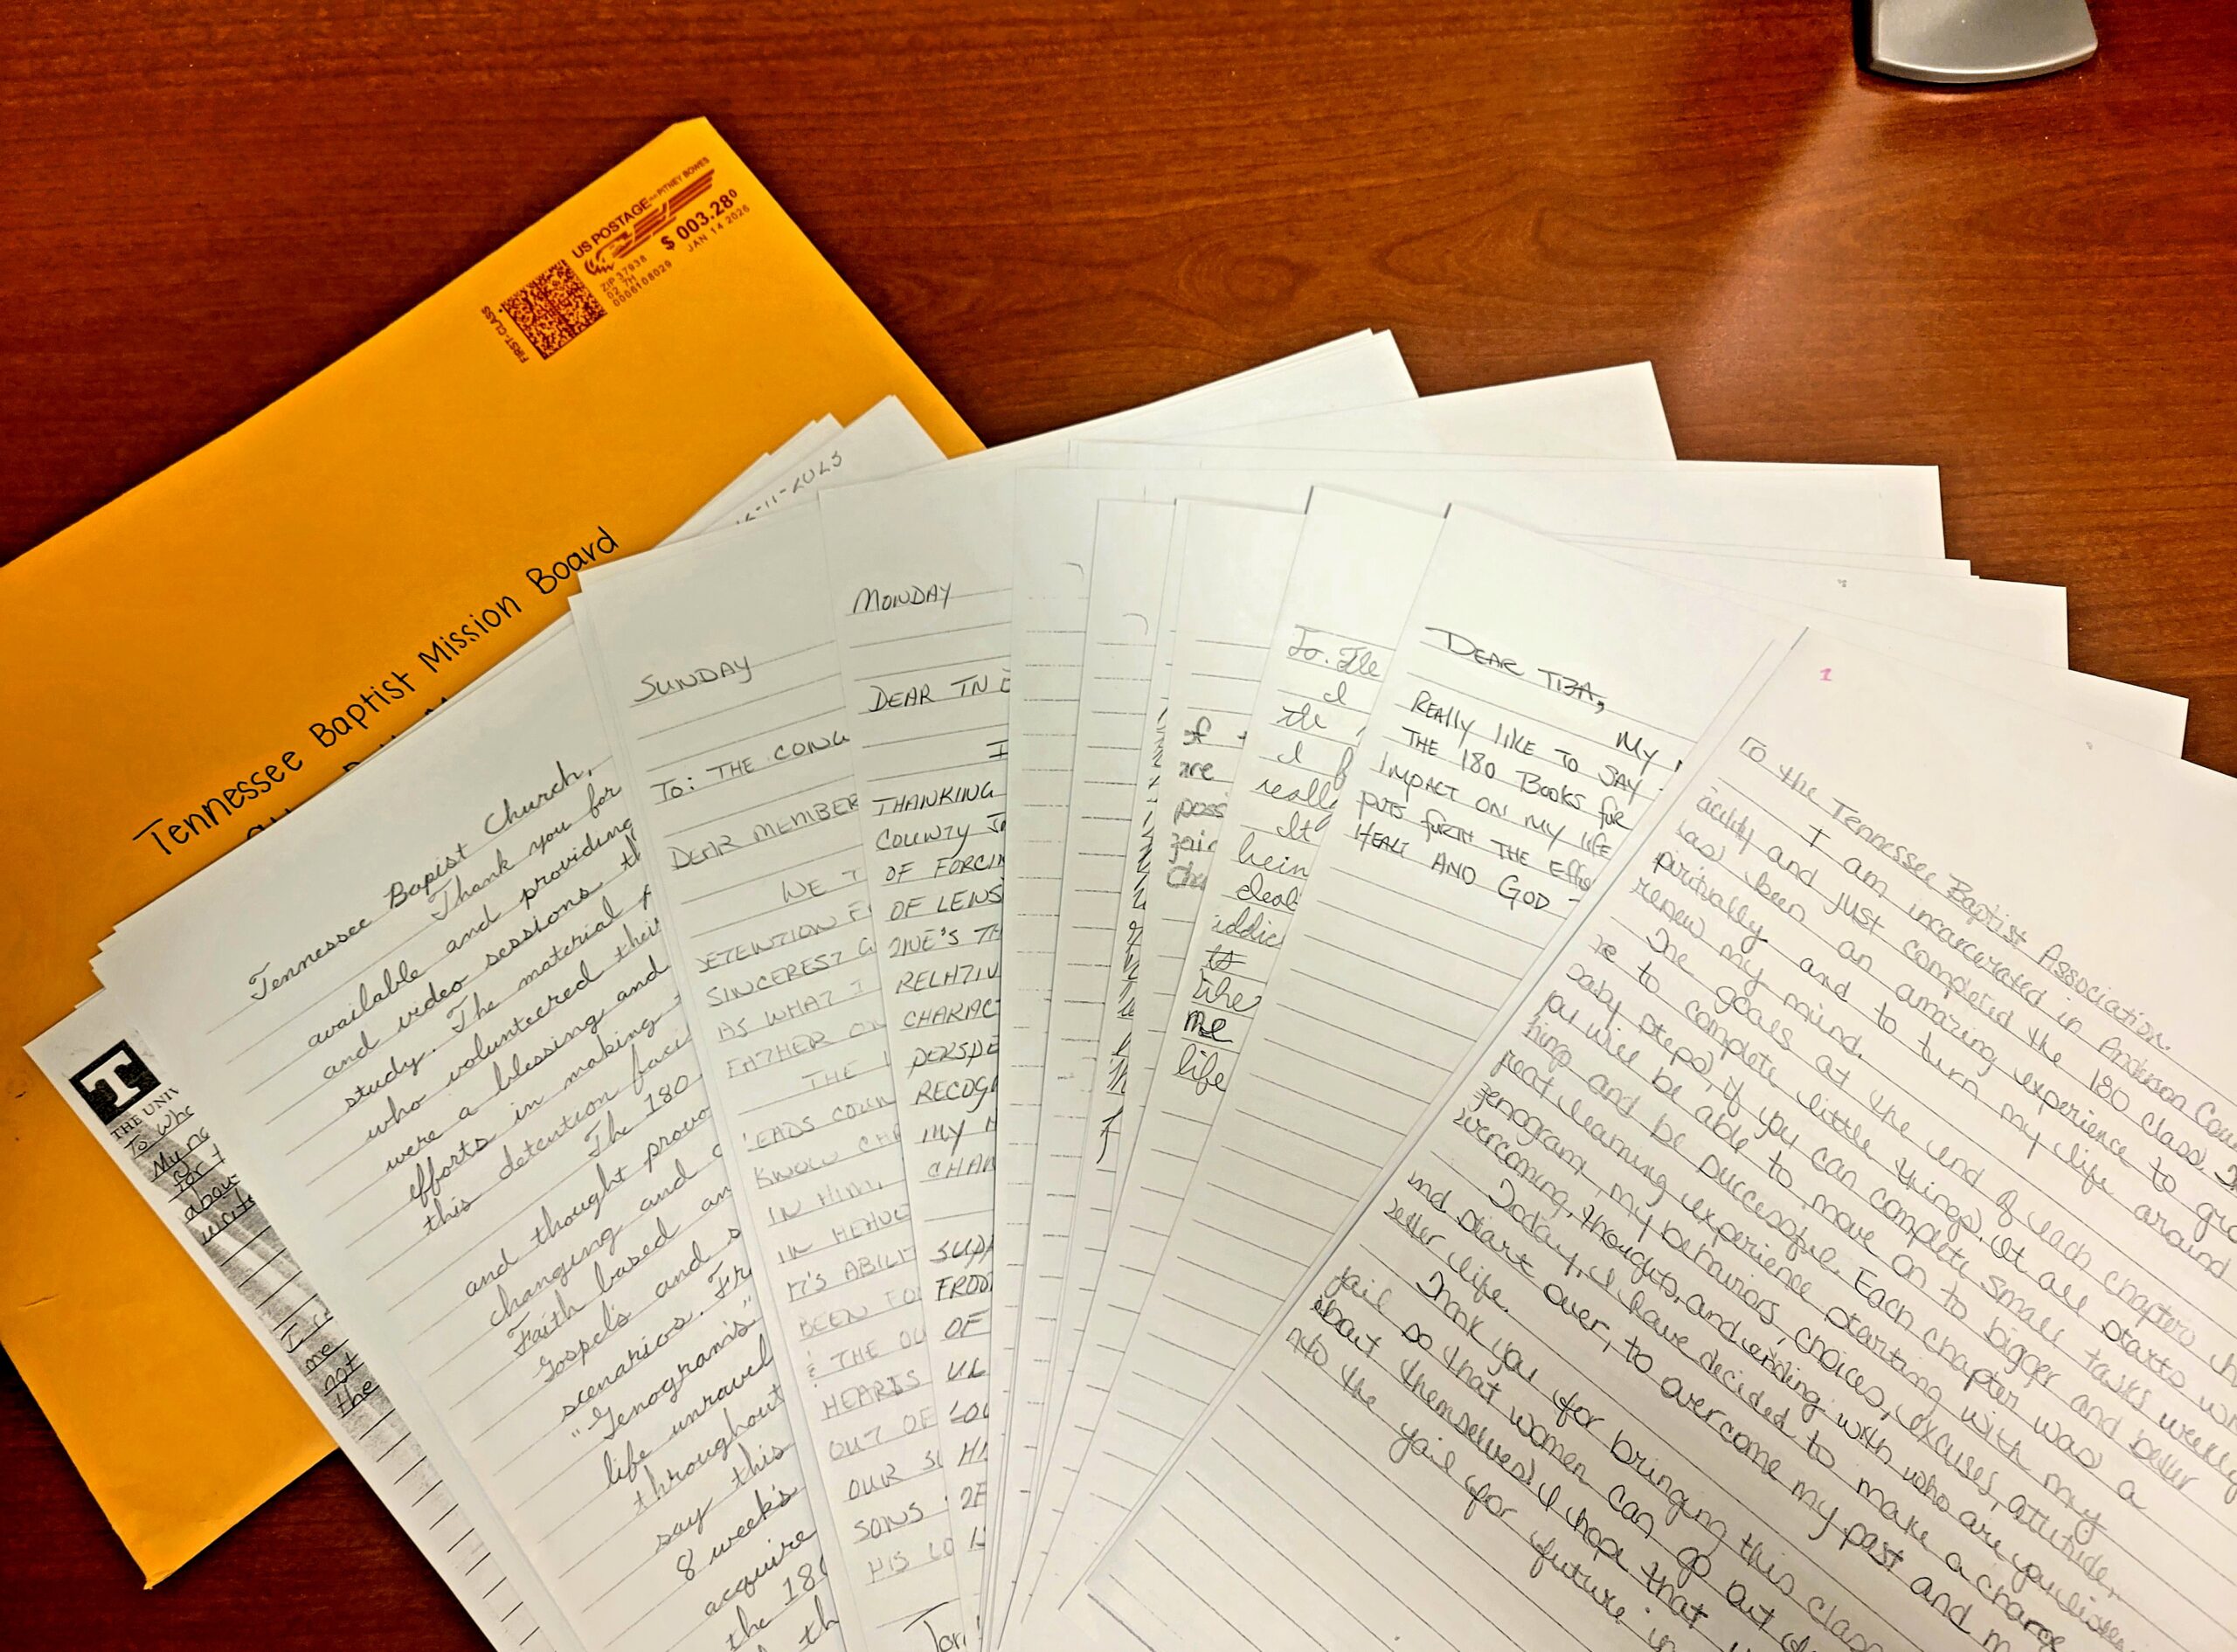 US POSTAGE PITNEY BOWES
FIRST-CLASS
ZIP 37938
02 7H
0006108029
$ 003.28⁰
JAN 14 2026
Tennessee Baptist Mission Board
-11-2025
THE UNIV
To Who
My na
for t
abou
writ
me
not
the
Tennessee Bapist Church,
Thank you for
available and providing
and video sessions th
study. The material
who volunteered their
were a blessing and
efforts in making
this detention faci
The 180
and thought provo
changing and
Faith based an
Gospel's and s
scenarios. Fr
"Genogram's"
life unravel
throughout
say this
8 week's
acquire
the 180
th
SUNDAY
To: THE CONG
DEAR MEMBER
WE T
DETENTION F
SINCEREST G
AS WHAT I
FATHER ON
THE
LEADS COUN
KNOW CHR
IN HIM,
IN HEAVE
IT'S ABILIT
BEEN FO
& THE OU
HEARTS
OUT OF
OUR S
SONS
HIS LO
MONDAY
DEAR TN B
I
THANKING
COUNTY JA
OF FORCIN
OF LENS
RELATIV
CHARAC
PERSPE
RECOG
MY H
CHAN
SUP
FROM
OF
of
are
poss
jair
cha
I
the
I f
reall
It
bein
deal
addic
to
the
me
life
DEAR TBA,
My
REALLY LIKE TO SAY
THE 180 BOOKS FUR
IMPACT ON MY LIFE
PUTS FURTH THE EFFO
HEALT AND GOD
1
To the Tennessee Baptist Association.
I am incarcerated in Anderson Cou
acility and just completed the 180 class. Th
has been an amazing experience to gro
piritually and to turn my life around
renew my mind.
The goals at the end of each chapter he
re to complete little things. It all starts wi
baby steps, if you can complete small tasks weekly
ou will be able to move on to bigger and better
hings and be successful. Each chapter was a
reat learning experience starting with my
genogram, my behaviors, choices, excuses, attitude,
vercoming, thoughts, and ending with who are you living
Today, I have decided to make a change
and start over, to overcome my past and
better life.
Thank you for bringing this class
jail so that women can go out
about themselves. I hope that
nto the jail for future in